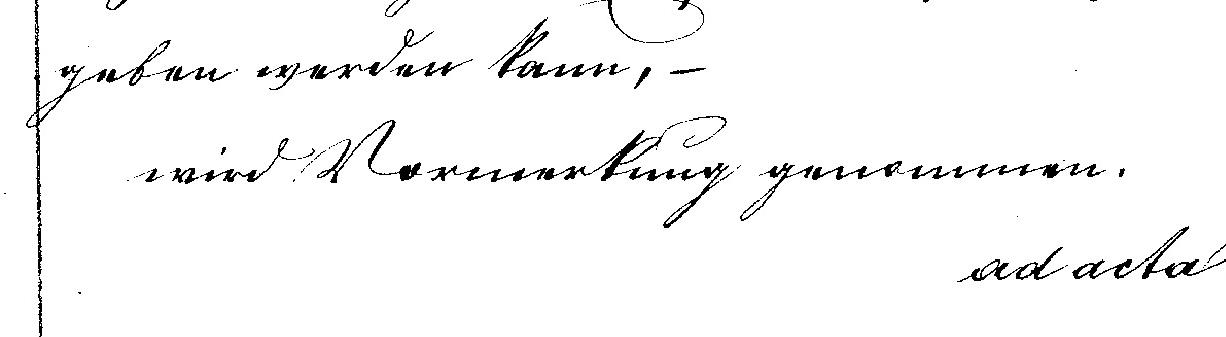 geben werden kann, –
wird Vormerkung genommen.
ad acta